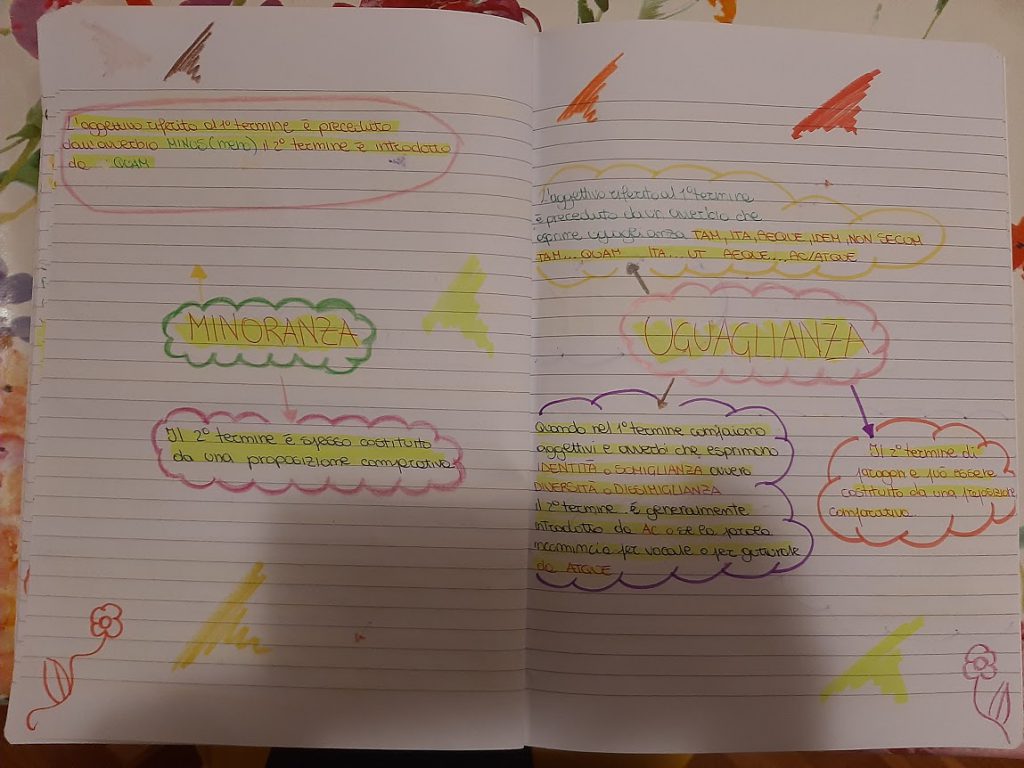 L'aggettivo riferito al 1° termine è preceduto
dall'avverbio MINUS (meno) il 2° termine è introdotto
da... QUAM
MINORANZA
Il 2° termine è spesso costituito
da una proposizione comparativa
L'aggettivo riferito al 1° termine
è preceduto da un avverbio che
esprime uguaglianza TAM, ITA, AEQUE, IDEM, NON SECUM
TAM... QUAM ITA... UT AEQUE... AC/ATQUE
UGUAGLIANZA
Quando nel 1° termine compaiono
aggettivi e avverbi che esprimono
IDENTITÀ o SOMIGLIANZA ovvero
DIVERSITÀ o DISSIMIGLIANZA
il 2° termine è generalmente
introdotto da AC o se la parola
incomincia per vocale o per guturale
da ATQUE
Il 2° termine di
paragone può essere
costituito da una proposizione
comparativa